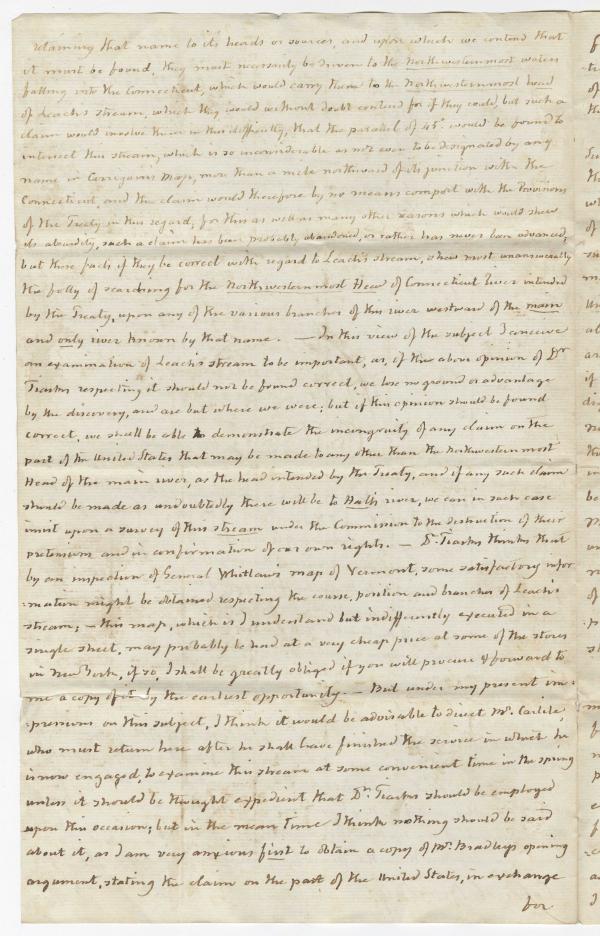 retaining that name to its heads or sources, and upon which we contend that
it must be found, they must necessarily be driven to the Northwesternmost waters
falling into the Connecticut, which would carry them to the Northwesternmost head
of Leach's stream, which they would without doubt contend for if they could, but such a
claim would involve them in this difficulty, that the parallel of 45°. would be found to
intersect this stream, which is so inconsiderable as not even to be designated by any
name in Carrigain's Map, more than a mile northward of its junction with the
Connecticut, and the claim would therefore by no means comport with the Provisions
of the Treaty in this regard; for this as well as many other reasons which would shew
its absurdity, such a claim has been probably abandoned, or rather has never been advanced;
but these facts if they be correct with regard to Leach's stream, shew most unanswerably
the folly of searching for the Northwesternmost Head of Connecticut River intended
by the Treaty, upon any of the various branches of this river westward of the main
and only river known by that name. — In this view of the subject I conceive
an examination of Leach's stream to be important, as, if the above opinion of Dr
Tiarks respecting it should not be found correct, we lose no ground or advantage
by the discovery, and are but where we were; but if this opinion should be found
correct, we shall be able to demonstrate the incongruity of any claim on the
part of the United States that may be made to any other than the Northwesternmost
Head of the main river, as the head intended by the Treaty, and if any such claim
should be made as undoubtedly there will be to Hall's river, we can in such case
insist upon a survey of this stream under the Commission to the destruction of their
pretensions and in confirmation of our own rights. — Dr. Tiarks thinks that
by an inspection of General Whitlaw's map of Vermont, some satisfactory infor
-mation might be obtained respecting the course, position and branches of Leach's
stream; — this map, which is I understand but indifferently executed in a
single sheet, may probably be had at a very cheap price at some of the stores
in New York, if so, I shall be greatly obliged if you will procure & forward to
me a copy of it by the earliest opportunity. — But under my present im-
-pressions on this subject, I think it would be advisable to direct Mr. Carlile,
who must return here after he shall have finished the service in which he
is now engaged, to examine this stream at some convenient time in the spring
unless it should be thought expedient that Dr. Tiarks should be employed
upon this occasion; but in the mean time I think nothing should be said
about it, as I am very anxious first to obtain a copy of Mr. Bradley's opening
argument, stating the claim on the part of the United States, in exchange
for